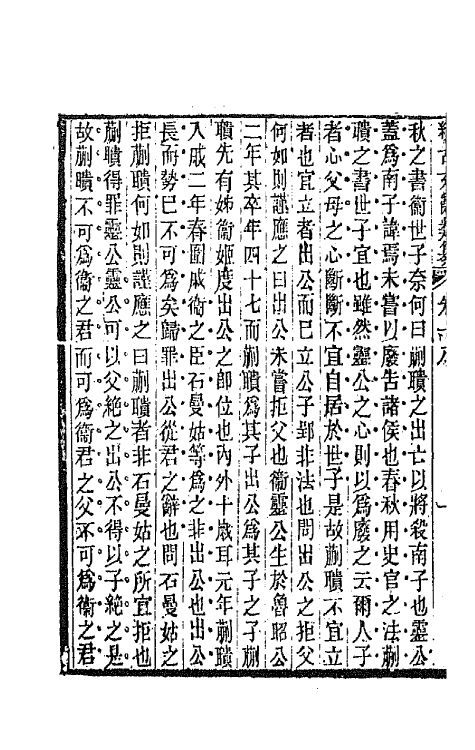 續古文辭類纂 卷一
秋之書衞世子奈何曰蒯聵之出亡以將殺南子也靈公
蓋爲南子諱焉未嘗以廢告諸侯也春秋用史官之法蒯
聵之書世子宜也雖然靈公之心則以爲廢之云爾人子
者心父母之心斷斷不宜自居於世子是故蒯聵不宜立
者也宜立者出公而已立公子郢非法也問出公之拒父
何如則謹應之曰出公未嘗拒父也衞靈公生於魯昭公
二年其卒年四十七而蒯聵爲其子出公爲其子之子蒯
聵先有姊衞姬度出公之卽位也內外十歲耳元年蒯聵
入戚二年春圍戚衞之臣石曼姑等爲之非出公也出公
長而勢已不可爲矣歸罪出公從君之辭也問石曼姑之
拒蒯聵何如則謹應之曰蒯聵者非石曼姑之所宜拒也
蒯聵得罪靈公靈公可以父絶之出公不得以子絶之是
故蒯聵不可爲衞之君而可爲衞君之父不可爲衞之君